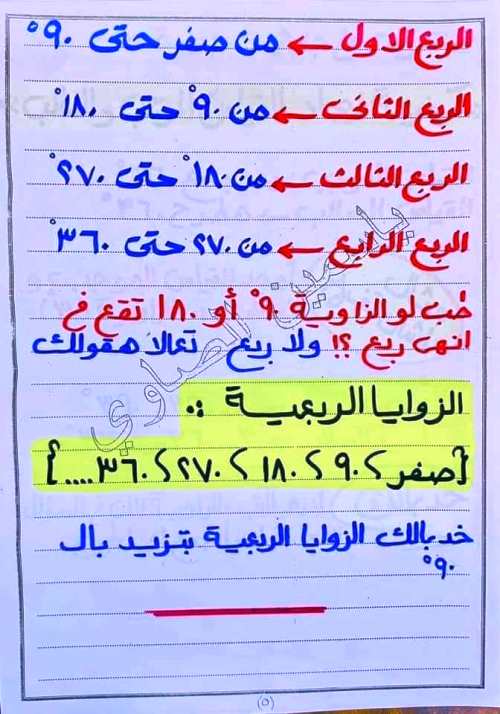 الربع الاول ← من صفر حتى ٩٠°
الربع الثانى ← من ٩٠° حتى ١٨٠°
الربع الثالث ← من ١٨٠° حتى ٢٧٠°
الربع الرابع ← من ٢٧٠ حتى ٣٦٠°
طب لو الزاوية ٩٠° أو ١٨٠ تقع في
انهى ربع ؟! ولا ربع تعالا هقولك
الزوايا الربعية :.
{صفر ؟ ٩٠ ؟ ١٨٠ ؟ ٢٧٠ ؟ ٣٦٠ ....}
خد بالك الزوايا الربعية بتزيد بال
٩٠°
(٥)
ياسمين الصاوي